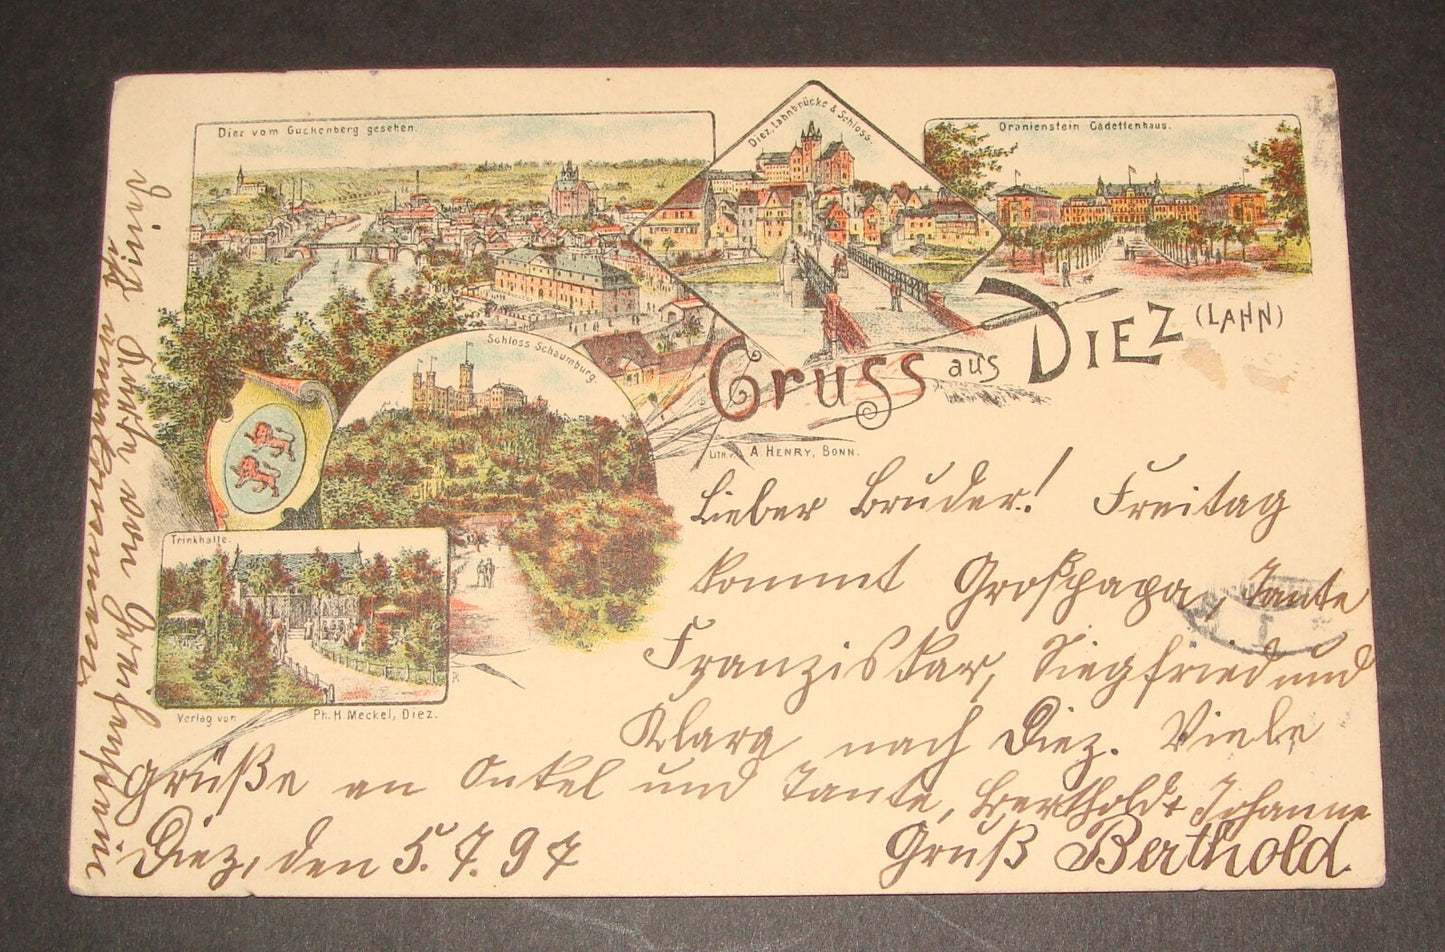 Diez vom Guckenberg gesehen.
Diez, Lahnbrücke & Schloss.
Oranienstein Cadettenhaus.
Gruss aus DIEZ (LAHN)
Schloss Schaumburg.
LITH. v. A. HENRY, BONN.
Trinkhalle.
Verlag von Ph. H. Meckel, Diez.
Lieber Bruder! Freitag
kommt Großpapa, Tante
Franziskar, Siegfried und
Klara nach Diez. Viele
Grüße an Onkel und Tante, Berthold + Johanne
Diez, den 5. 7. 97
Gruß Berthold
Deine Karte von
ist angekommen